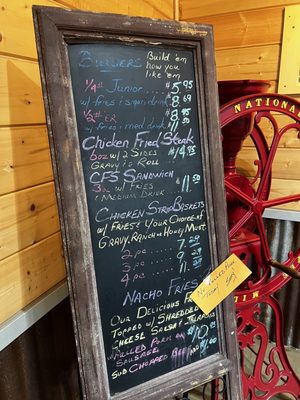 Burgers Build 'em
how you
like 'em
1/4 lb Junior $5.95
w/ fries 1 sm drink $8.69
1/2 lb er $8.95
w/ fries 1 med drink $11
Chicken Fried Steak
6oz w/ 2 Sides $14.95
Gravy & Roll
CFS Sandwich
3oz w/ Fries $11.50
1 Medium Drink
Chicken Strip Baskets
w/ Fries & Your Choice of
Gravy, Ranch or Honey Must.
2 pc. 7.29
3 pc. 9.29
4 pc. 11.29
Nacho Fries
Our Delicious
Topped w/ Shredded
Cheese Salsa
Pulled Pork or $10
Sausage
Sub Chopped
NATIONAL